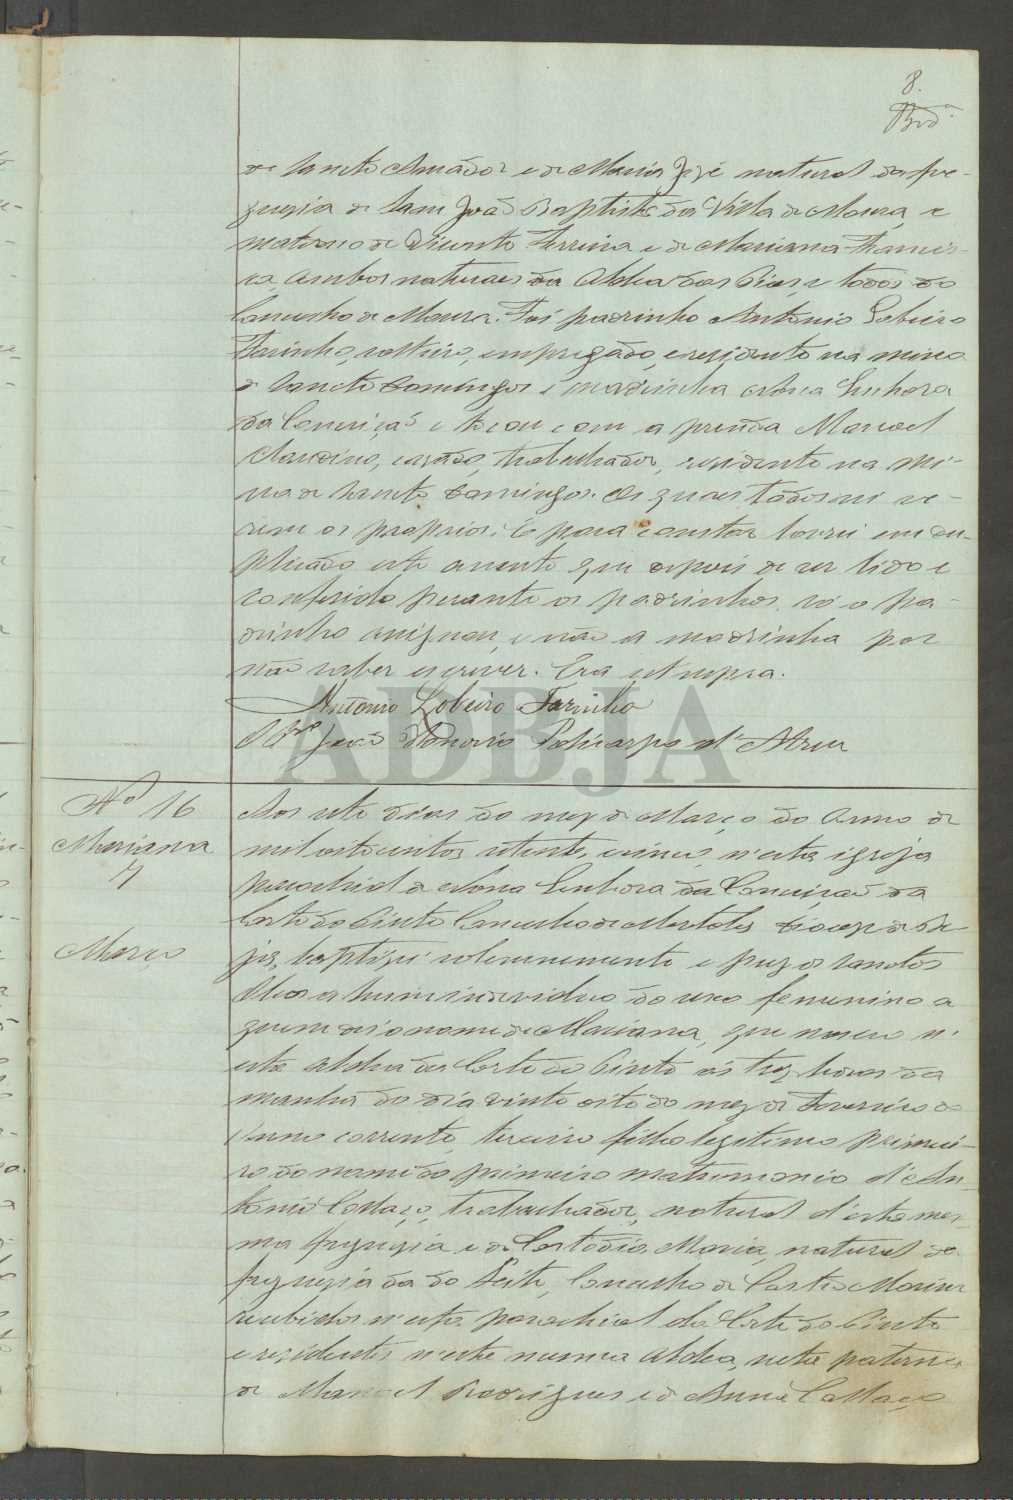 8.
de Sancto Amador e de Maria José natural da fre-
guezia de Sam João Baptista da Villa de Moura, e
materno de Vicente Ferreira e de Marianna Francis-
ca, ambos naturaes da Aldea das Pias, e todos do
Concelho de Moura. Foi padrinho Antonio Lobeiro
Farinho, solteiro, empregado, e rezidente na mina
de Sancto Domingos e madrinha Nossa Senhora
da Conceição e tocou com a prenda Manoel
Claudino, cazado, trabalhador, rezidente na Mi-
na de Sancto Domingos. Os quaes todos sei se-
rem os proprios. E para constar lavrei em du-
plicado este assento que depois de ser lido e
conferido perante os padrinhos, só o pa-
drinho assignou, e não a madrinha por
não saber escrever. Era ut supra.
Antonio Lobeiro Farinho
João Honorio Policarpo d'
ADBJA
Nº 16
Marianna
7
Março
Aos sete dias do mez de Março do Anno de
mil oitocentos setenta e cinco, n'esta igreja
parochial de Nossa Senhora da Conceição da
Corte do Pinto Concelho de Mertola Dioceze de Be-
ja, baptizei solemnemente e puz os Sanctos
Oleos a hum individuo do sexo femenino a
quem dei o nome de Marianna, que nasceu n'
esta Aldea da Corte do Pinto ás trez horas da
manhã do dia vinte oito do mez de Fevereiro do
Anno corrente, terceiro filho legitimo primei-
ro do nome do primeiro matrimonio d'An-
tonio Collaço, trabalhador, natural d'esta mes-
ma freguezia e de Custodia Maria, natural da
freguezia da do Leite, Concelho de Castro Marim
recebidos n'esta parochial da Corte do Pinto
e rezidentes n'esta mesma Aldea, neta paterna
de Manoel Rodrigues e de Anna Collaço